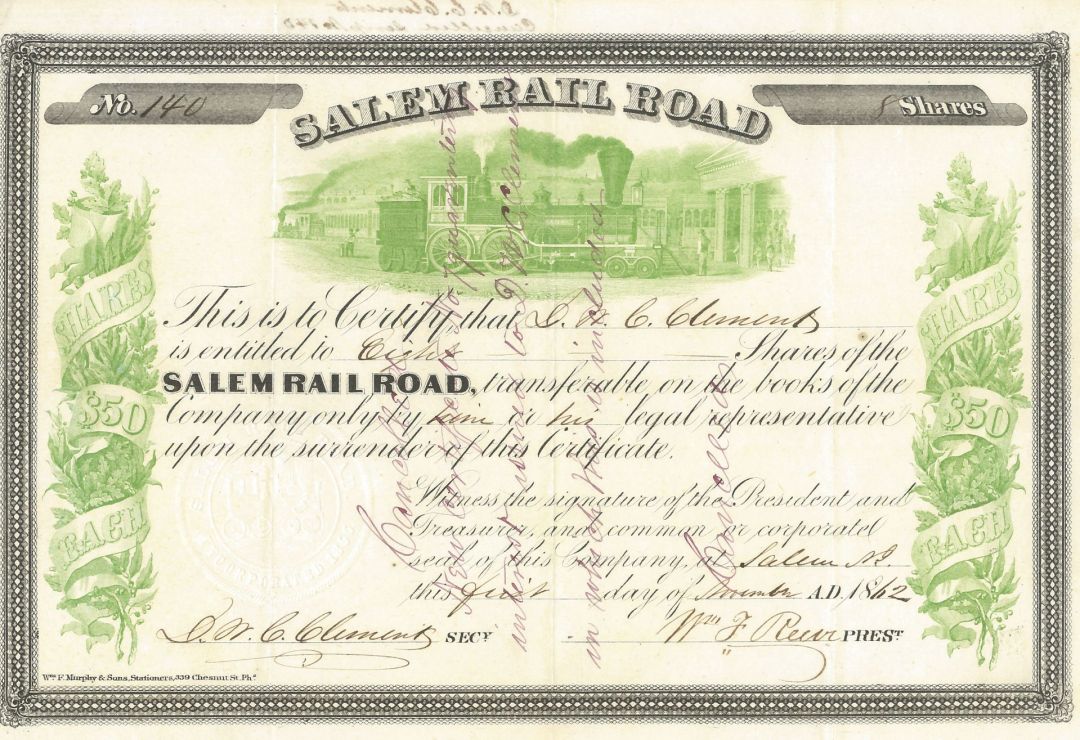 No. 140
SALEM RAIL ROAD
8 Shares
SHARES
$50
EACH
SHARES
$50
EACH
This is to Certify that D. W. C. Clement
is entitled to Eight Shares of the
SALEM RAIL ROAD, transferable on the books of the
Company only by him or his legal representative
upon the surrender of this Certificate.
Witness the signature of the President and
Treasurer, and common or corporate
seal of this Company, at Salem N.J.
this first day of November A.D. 1862
D. W. C. Clement SECY
Wm F. Reeve PREST
Wm. F. Murphy & Sons, Stationers, 339 Chesnut St. Pha.
Cancelled
New Certificate No.
issued to D. W. C. Clement
in which this is included
Cancelled